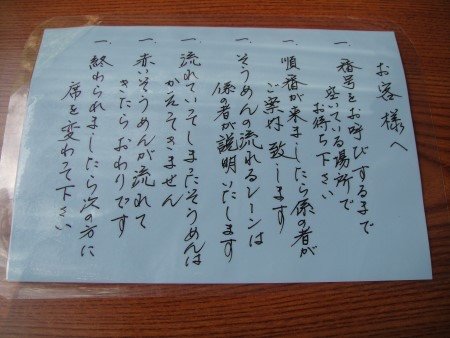 お客様へ
一、番号をお呼びするまで
空いている場所で
お待ち下さい
一、順番が来ましたら係の者が
ご案内致します
一、そうめんの流れるレーンは
係の者が説明いたします
一、流れていってしまったそうめんは
かえってきません
一、赤いそうめんが流れて
きたらおわりです
一、終わられましたら次の方に
席を変わって下さい